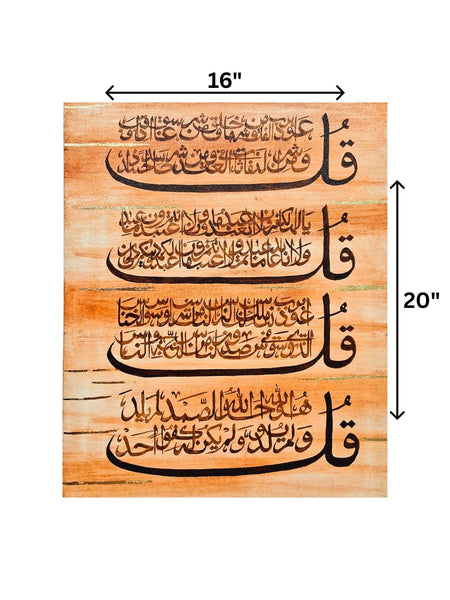 16"
20"
قل اعوذ برب الفلق من شر ما خلق ومن شر غاسق اذا وقب
ومن شر النفاثات في العقد ومن شر حاسد اذا حسد
قل يا ايها الكافرون لا اعبد ما تعبدون ولا انتم عابدون ما اعبد
ولا انا عابد ما عبدتم ولا انتم عابدون ما اعبد لكم دينكم ولي دين
قل اعوذ برب الناس ملك الناس اله الناس من شر الوسواس الخناس
الذي يوسوس في صدور الناس من الجنة والناس
قل هو الله احد الله الصمد لم يلد
ولم يولد ولم يكن له كفوا احد